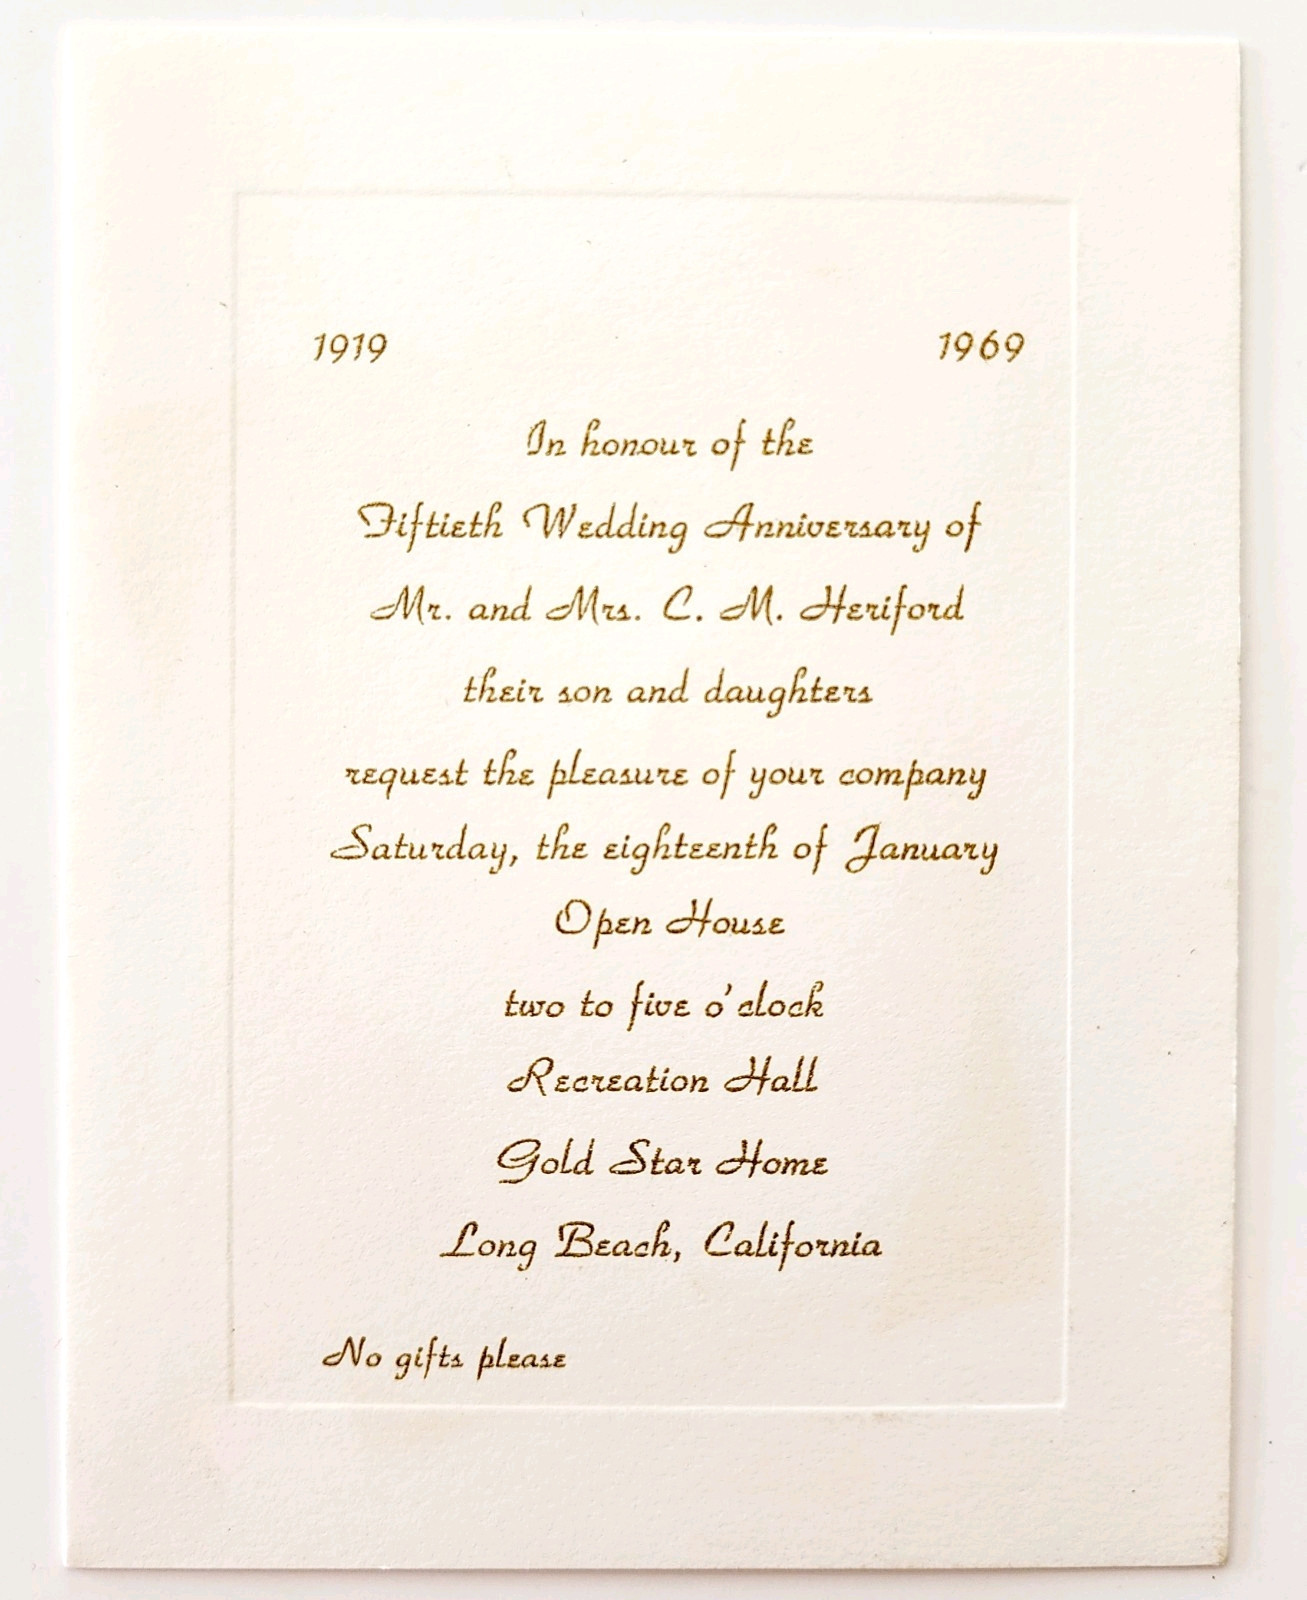 1919 1969
In honour of the
Fiftieth Wedding Anniversary of
Mr. and Mrs. C. M. Heriford
their son and daughters
request the pleasure of your company
Saturday, the eighteenth of January
Open House
two to five o'clock
Recreation Hall
Gold Star Home
Long Beach, California
No gifts please